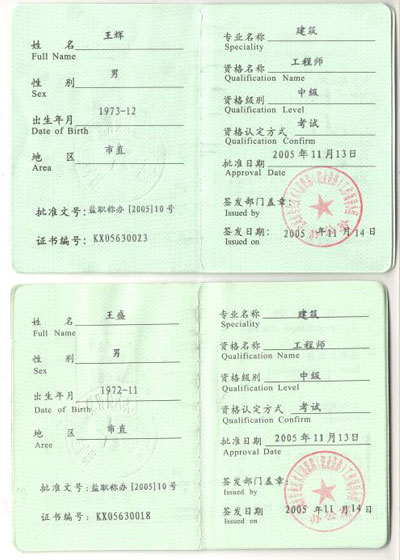 姓 名 王辉
Full Name
性 别 男
Sex
出生年月 1973-12
Date of Birth
地 区 市直
Area
批准文号：盐职称办[2005]10号
证书编号：KX05630023
专业名称 建筑
Speciality
资格名称 工程师
Qualification Name
资格级别 中级
Qualification Level
资格认定方式 考试
Qualification Confirm
批准日期 2005年11月13日
Approval Date
签发部门盖章：
Issued by
签发日期： 2005年11月14日
Issued on
姓 名 王盛
Full Name
性 别 男
Sex
出生年月 1972-11
Date of Birth
地 区 市直
Area
批准文号：盐职称办[2005]10号
证书编号：KX05630018
专业名称 建筑
Speciality
资格名称 工程师
Qualification Name
资格级别 中级
Qualification Level
资格认定方式 考试
Qualification Confirm
批准日期 2005年11月13日
Approval Date
签发部门盖章：
Issued by
签发日期： 2005年11月14日
Issued on